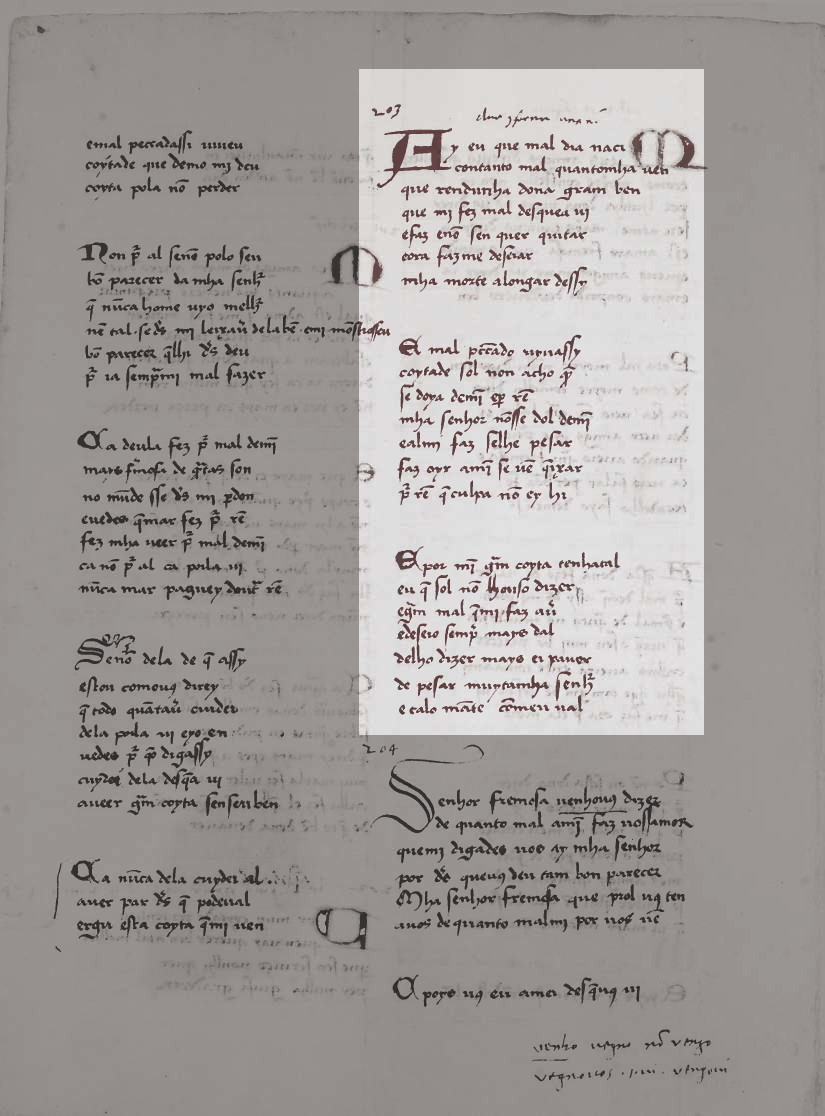 emal peccadassi uiueu
coytade que demo mi deu
coyta pola nō perder
Non ꝑ̄ al senō polo seu
bō parecer da mha senhr̄
q̄ nūca home uyo melhr̄
nē tal. se d̄s mi leixaū de la bē. emi mōstrosseu
bō parecer q̄lhi d̄s deu
ꝑ̄ ia semp̄mi mal fazer
Ca deula fez ꝑ̄ mal demī
mays fm̄osa de q̄ntas son
no mūde sse d̄s mi ꝑdon
euedes q̄mar fez ꝑ̄ rē
fez mha ueer ꝑ̄ mal demī
ca nō ꝑ̄ al ca pola ui
nūca mar paguey dout̄ rē
Senōr de la de q̄ assy
estou comouꝯ direy
q̄ todo quātaū cuidei
dela pola ui eyo en
uedes ꝑ̄ q̄o digassy
cuydei dela desq̄a ui
aueer gm̄ coyta sen seu ben
Ca nūca dela cuydei al.
auer par d̄s q̄ podeual
ergu esta coyta q̄mi uen
203
Ay eu que mal dia naci
contanto mal quantomha uen
que rendunha dona gram ben
que mi fez mal desquea ui
efaz enō sen quer quitar
eora fazme deseiar
mha morte alongar dessy
E mal pccādo uyuassy
coytade sol non acho q̄
se doya demī eꝑ rē
mha senhor nosse dol demī
ealmi faz selhe pesar
faz oyr amī se uē q̄ixar
ꝑ̄ rē q̄ culpa nō ey hi
E por mī gm̄ coyta tenhatal
eu q̄ sol nō lhouso dizer
egm̄ mal q̄mi faz aū
edeseio semp̄ mays dal
delho dizer mays ei pauor
de pesar muytamha senhr̄
e calo māte cōmeu ual
204
Senhor fremosa uenhouꝯ dizer
de quanto mal amī faz uossamor
quemi digades uos ay mha senhor
por d̄s queuꝯ deu tam bon parecer
Mha senhor fremosa que prol uꝯ ten
auos de quanto malmi por uos uē
E poys uꝯ eu amei desq̄uꝯ ui
uenho uegno nō uengo